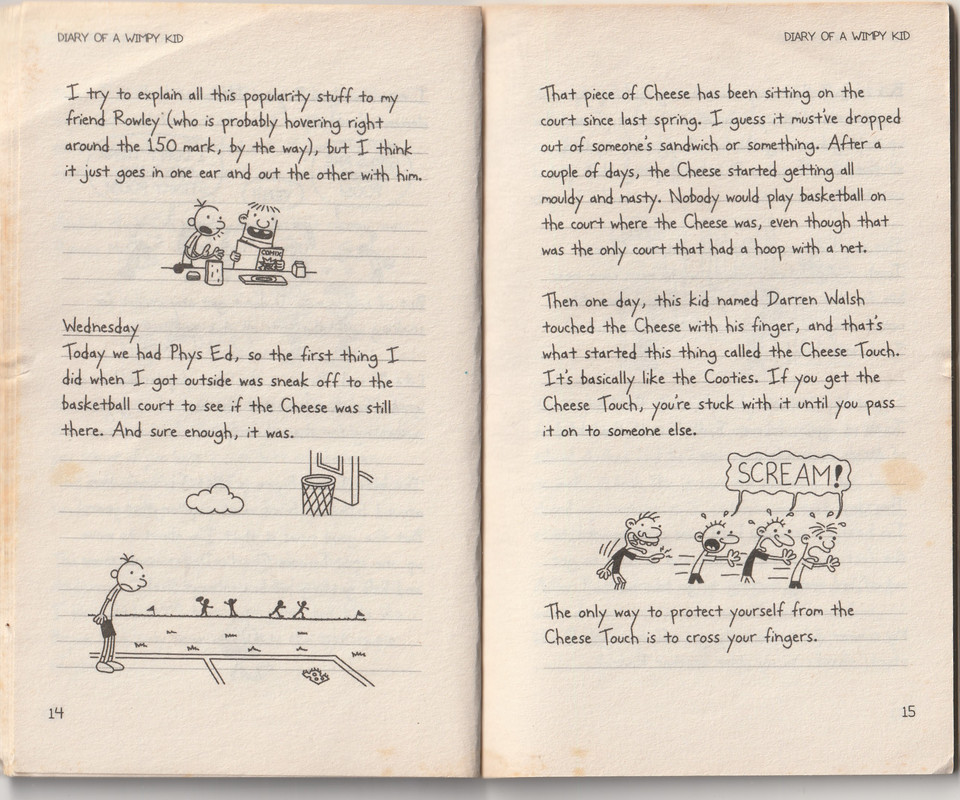 DIARY OF A WIMPY KID
I try to explain all this popularity stuff to my
friend Rowley (who is probably hovering right
around the 150 mark, by the way), but I think
it just goes in one ear and out the other with him.
COMIX
Wednesday
Today we had Phys Ed, so the first thing I
did when I got outside was sneak off to the
basketball court to see if the Cheese was still
there. And sure enough, it was.
14
DIARY OF A WIMPY KID
That piece of Cheese has been sitting on the
court since last spring. I guess it must've dropped
out of someone's sandwich or something. After a
couple of days, the Cheese started getting all
mouldy and nasty. Nobody would play basketball on
the court where the Cheese was, even though that
was the only court that had a hoop with a net.
Then one day, this kid named Darren Walsh
touched the Cheese with his finger, and that's
what started this thing called the Cheese Touch.
It's basically like the Cooties. If you get the
Cheese Touch, you're stuck with it until you pass
it on to someone else.
SCREAM!
The only way to protect yourself from the
Cheese Touch is to cross your fingers.
15